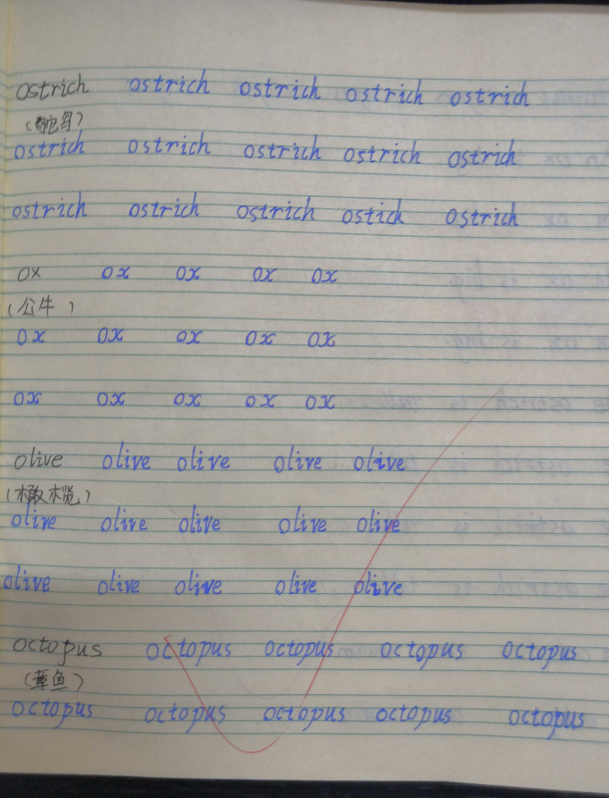 ostrich ostrich ostrich ostrich ostrich
(鸵鸟)
ostrich ostrich ostrich ostrich ostrich
ostrich ostrich ostrich ostich ostrich
ox ox ox ox ox
(公牛)
ox ox ox ox ox
ox ox ox ox ox
olive olive olive olive olive
(橄榄)
olive olive olive olive olive
olive olive olive olive olive
octopus octopus octopus octopus octopus
(章鱼)
octopus octopus octopus octopus octopus